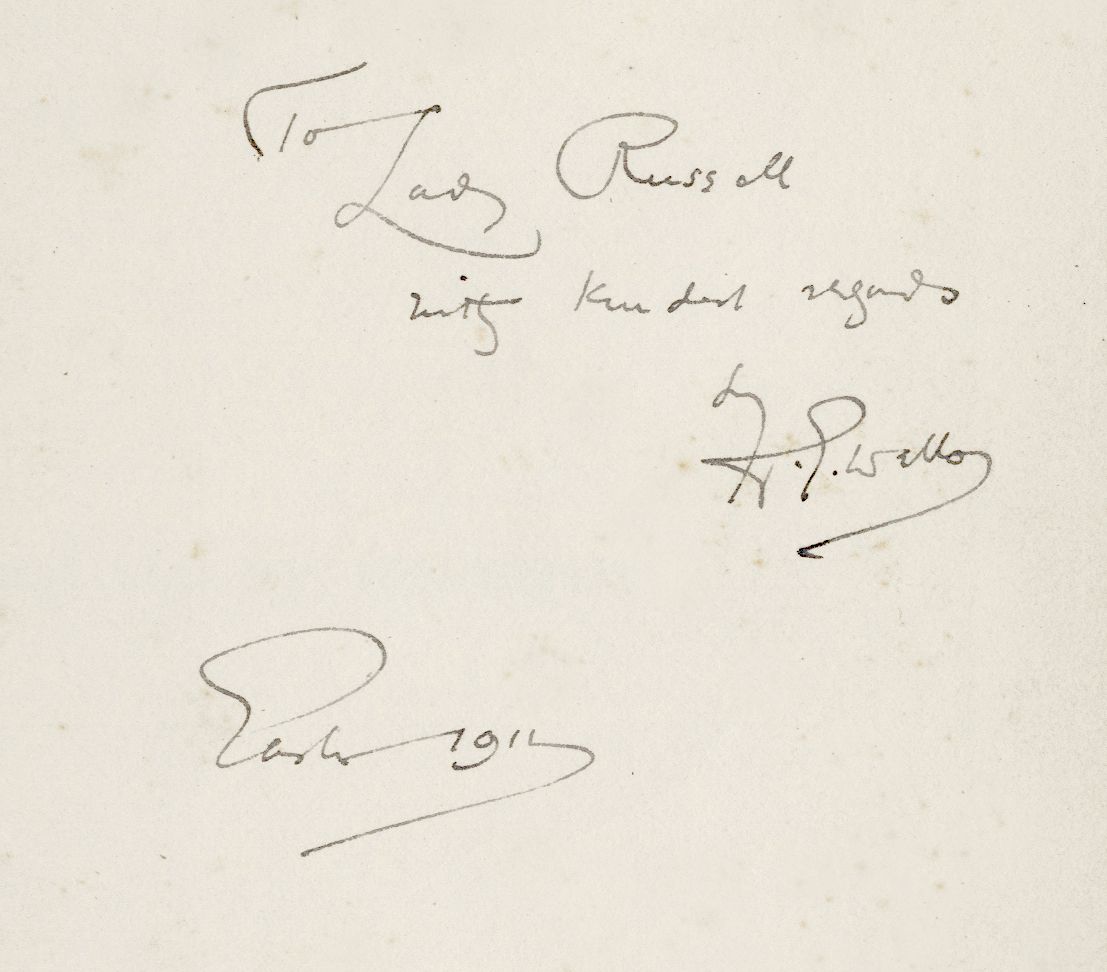 To Lady Russell
with kindest regards
by
H.G. Wells
Easter 1912